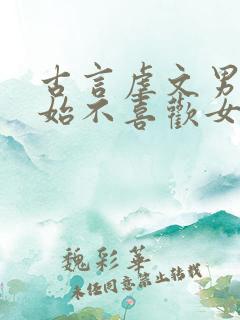 古言虐文男
始不喜歡女
魏彩華
未经同意禁止转载